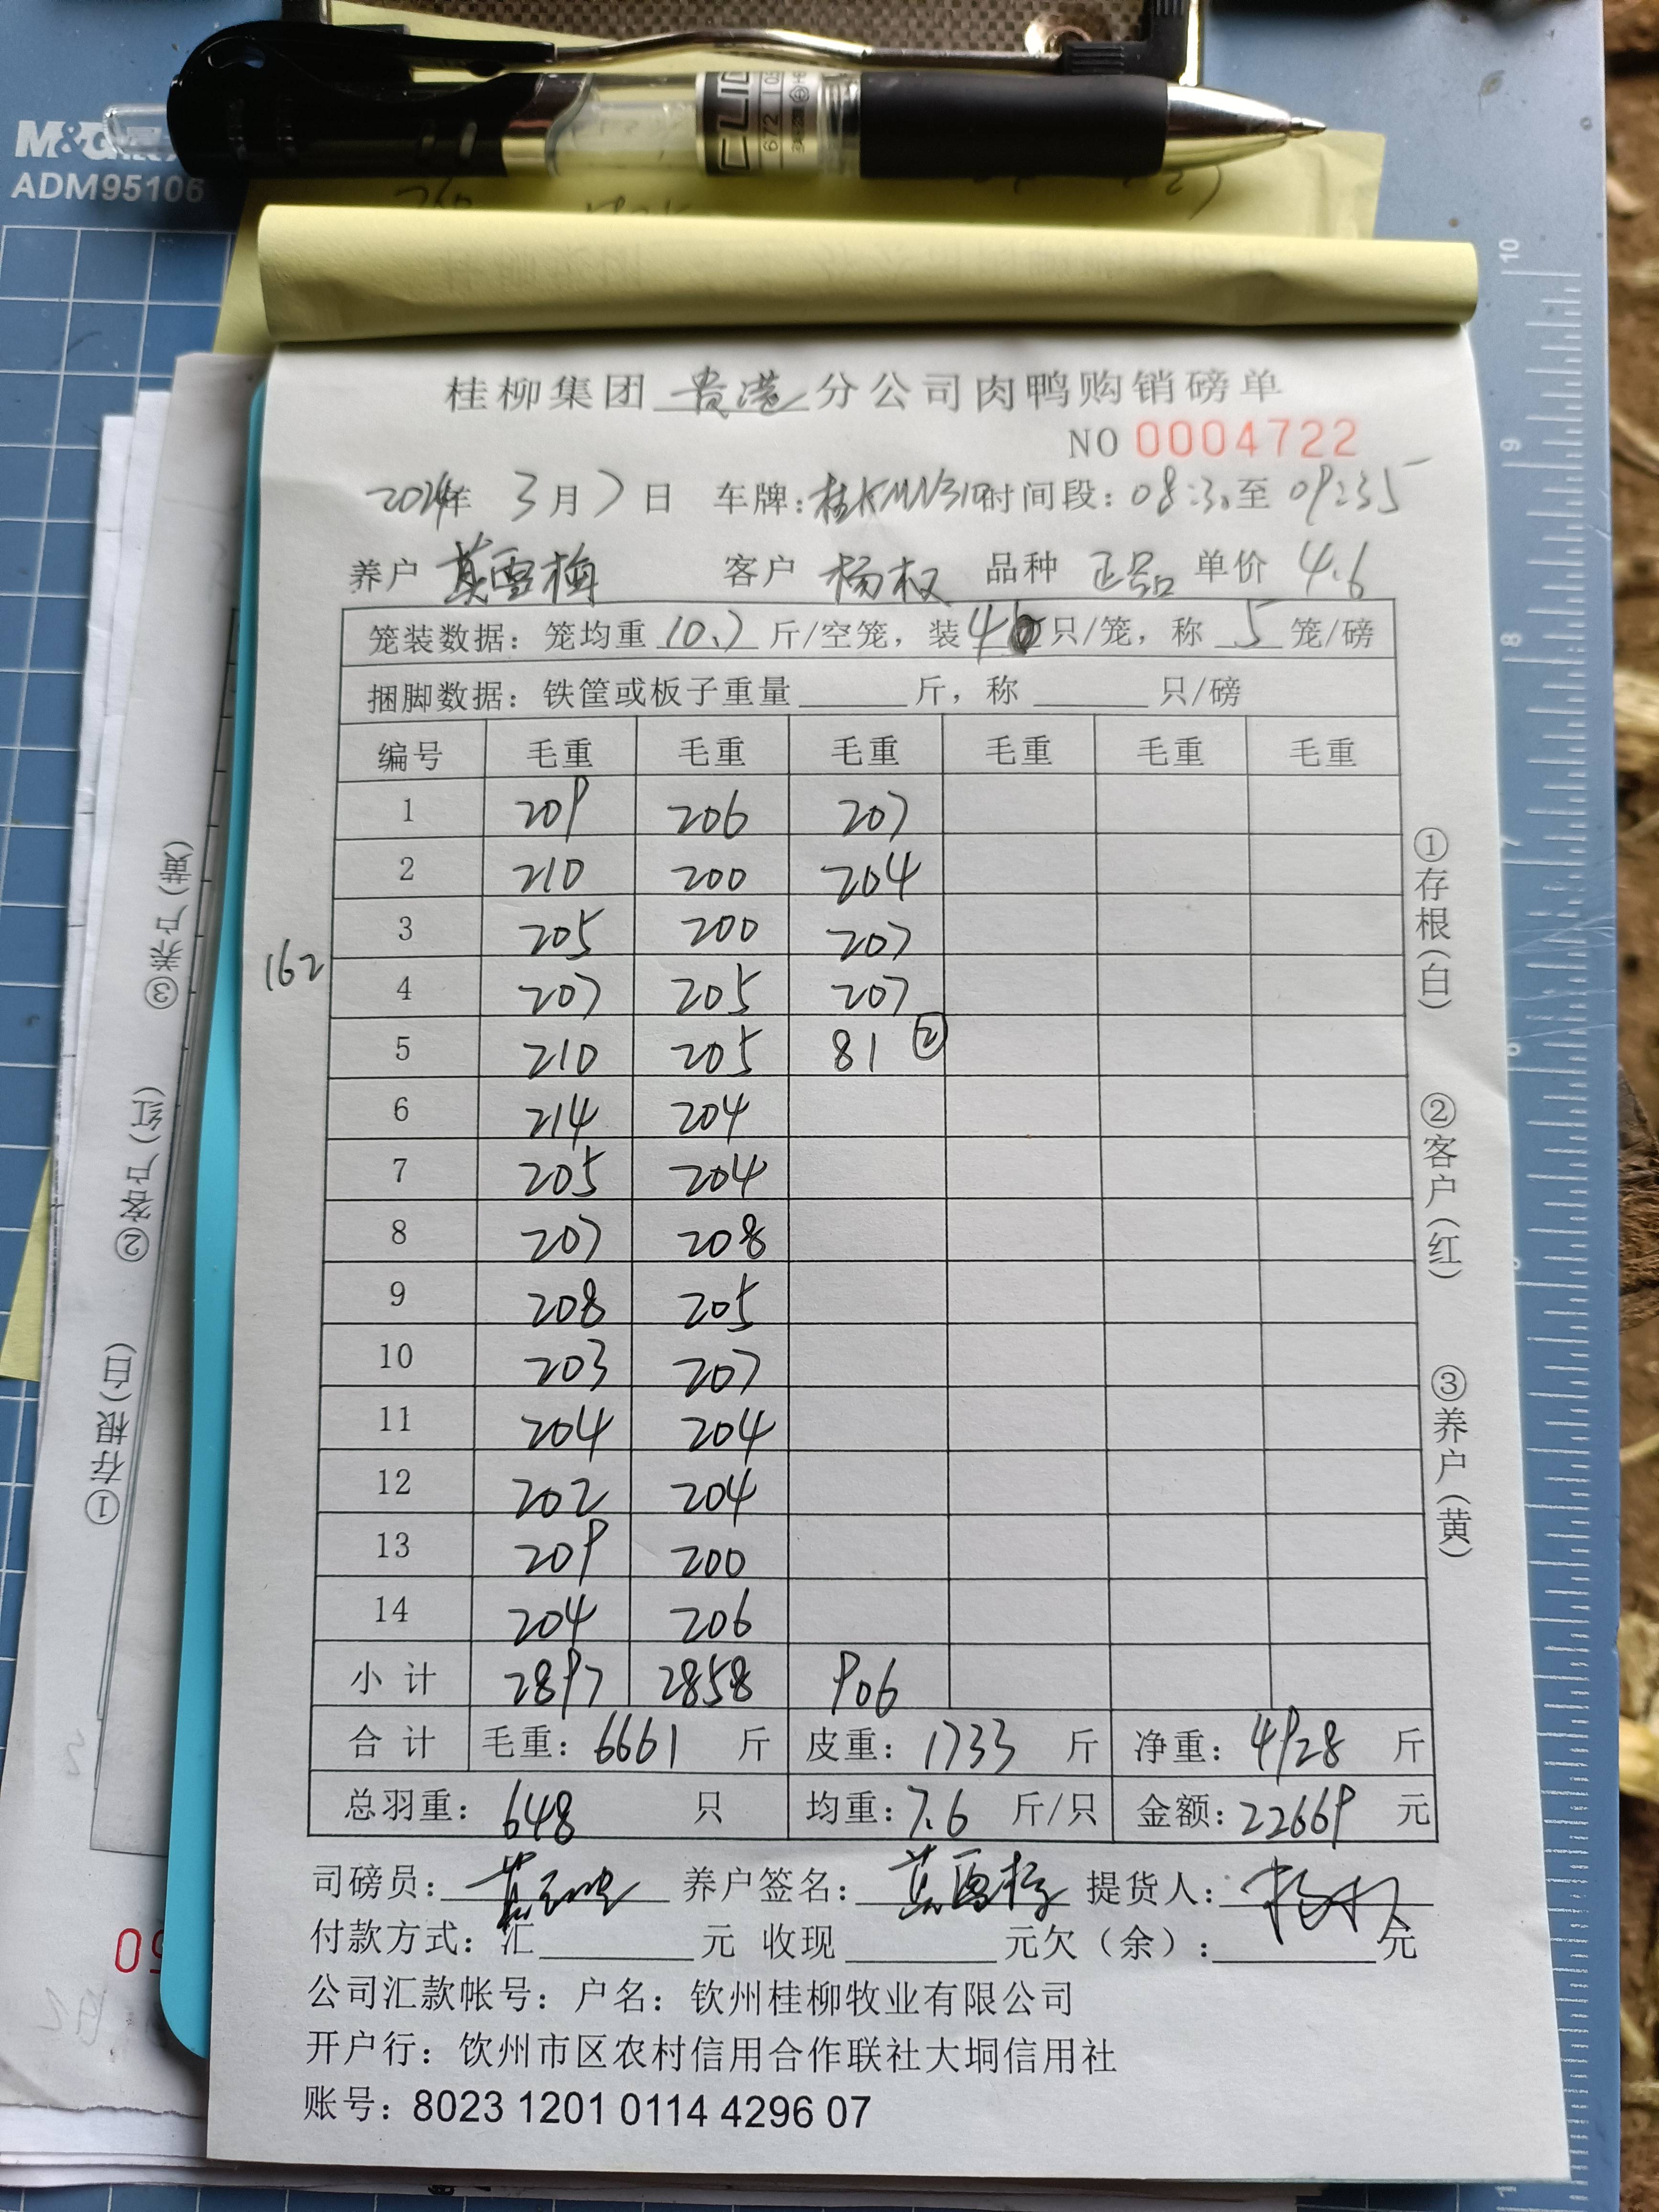 M&G
ADM95106
桂柳集团 贵港 分公司肉鸭购销磅单
NO 0004722
2024年 3月7日 车牌:桂KMN310 时间段:08:30至 09:35
养户 莫雪梅 客户 杨权 品种 正品 单价 4.6
笼装数据:笼均重 10.7 斤/空笼,装 4 只/笼,称 5 笼/磅
捆脚数据:铁筐或板子重量______斤,称______只/磅
编号 毛重 毛重 毛重 毛重 毛重 毛重
1 209 206 207
2 210 200 204
3 205 200 207
162
4 207 205 207
5 210 205 81 ②
6 214 204
7 205 204
8 207 208
9 208 205
10 203 207
11 204 204
12 202 204
13 209 200
14 204 206
小计 2897 2858 906
合计 毛重:6661 斤 皮重:1733 斤 净重:4928 斤
总羽重:648 只 均重:7.6 斤/只 金额:22669 元
司磅员: 养户签名:莫雪梅 提货人:杨权
付款方式:汇______元 收现______元欠(余):______元
公司汇款帐号:户名:钦州桂柳牧业有限公司
开户行:饮州市区农村信用合作联社大垌信用社
账号:8023 1201 0114 4296 07
①存根(白) ②客户(红) ③养户(黄)
①存根(白) ②客户(红) ③养户(黄)
10
9
8